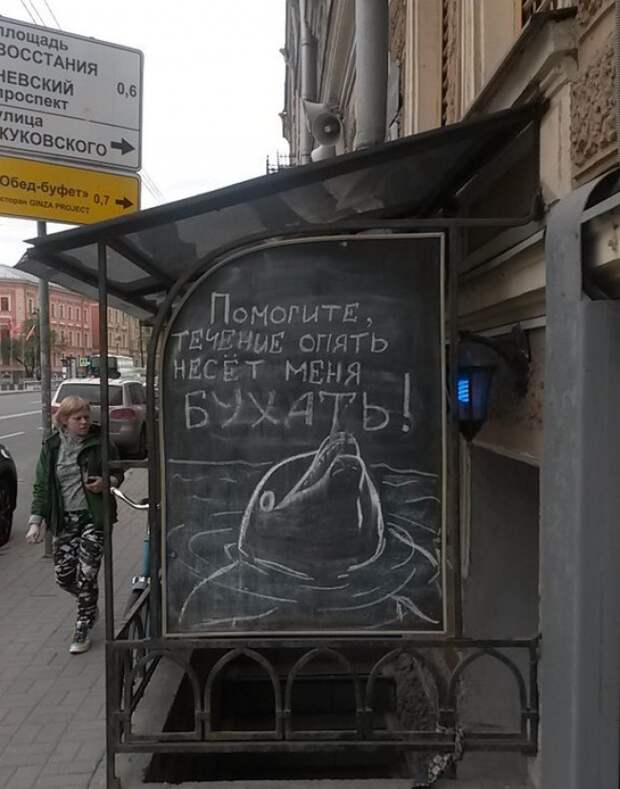 площадь
ВОССТАНИЯ
НЕВСКИЙ
проспект
0,6
улица
ЖУКОВСКОГО
Обед-буфет» 0,7
GINZA PROJECT
Помогите,
течение опять
несёт меня
БУХАТЬ!